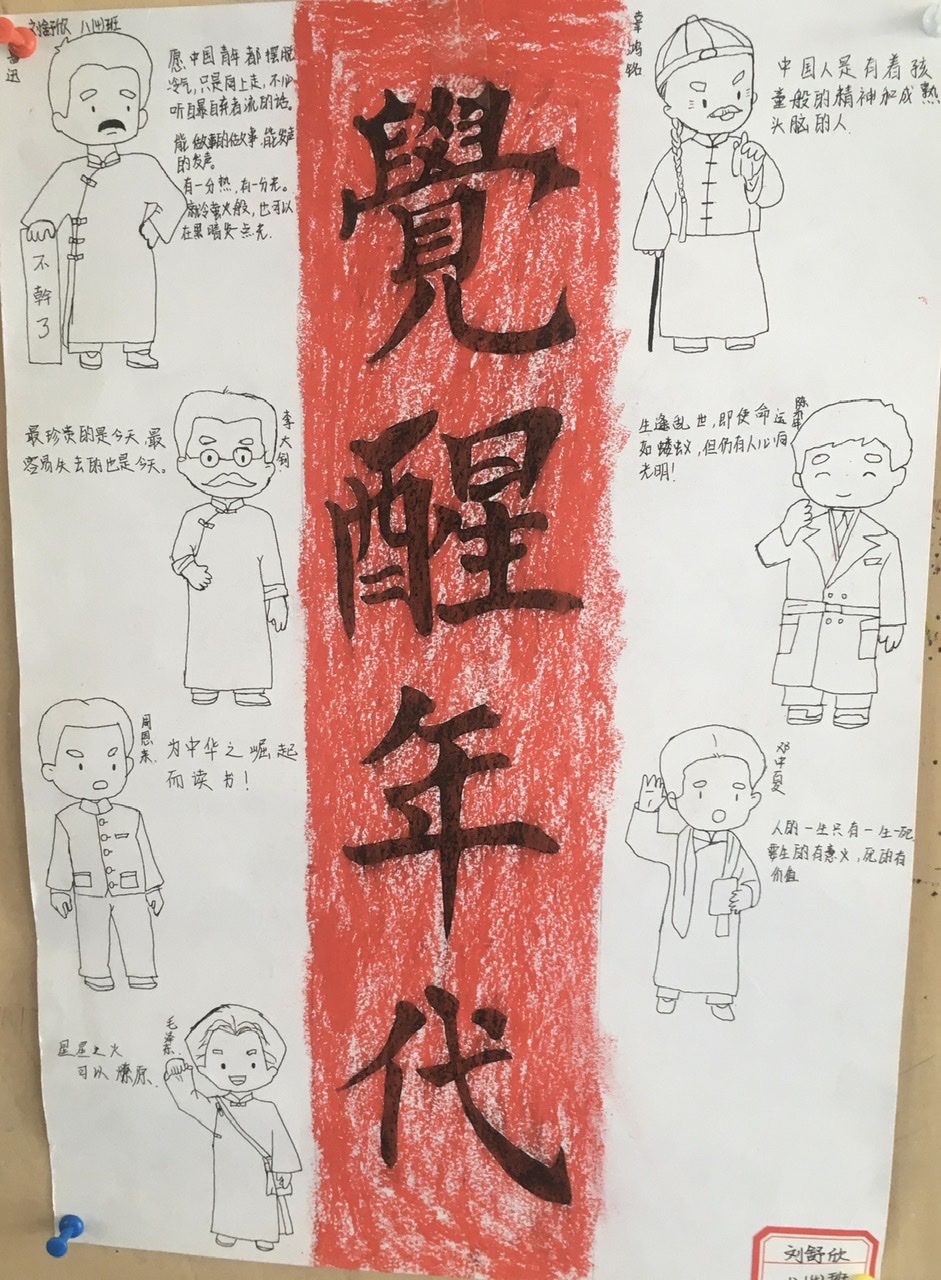 刘舒欣 八(4)班
鲁迅
愿中国青年都摆脱
冷气,只是向上走,不必
听自暴自弃者流的话。
能做事的做事,能发声
的发声。
有一分热,有一分光。
就令萤火般,也可以
在黑暗发点光.
不
幹
了
最珍贵的是今天,最
容易失去的也是今天。
李大钊
周恩来
为中华之崛起
而读书!
毛泽东
星星之火
可以燎原.
覺
醒
年
代
辜鸿铭
中国人是有着孩
童般的精神和成熟
头脑的人.
生逢乱世,即使命运
如蝼蚁,但仍有人心向
光明!
邓中夏
人的一生只有一生一死,
要生的有意义,死的有
价值
刘舒欣
八(4)班